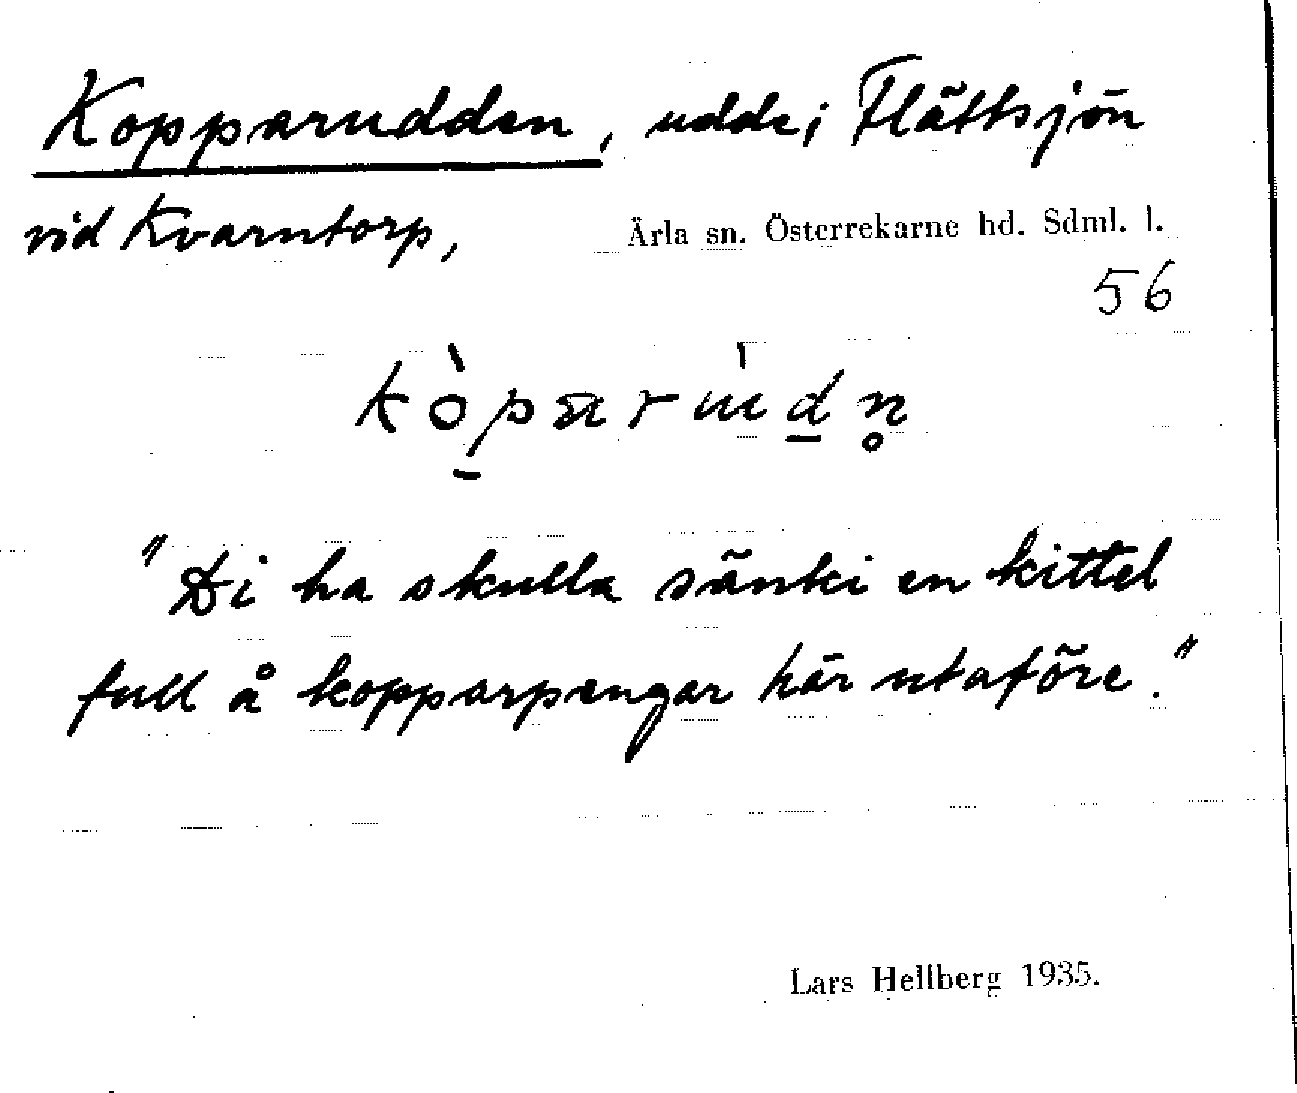 Kopparudden, udde i Flättsjön
vid Kvarntorp, Ärla sn. Österrekarne hd. Sdml. l.
56
kòp̠arúd̠n̥
"Di ha skulla sänki en kittel
full å kopparpengar här utaföre."
Lars Hellberg 1935.